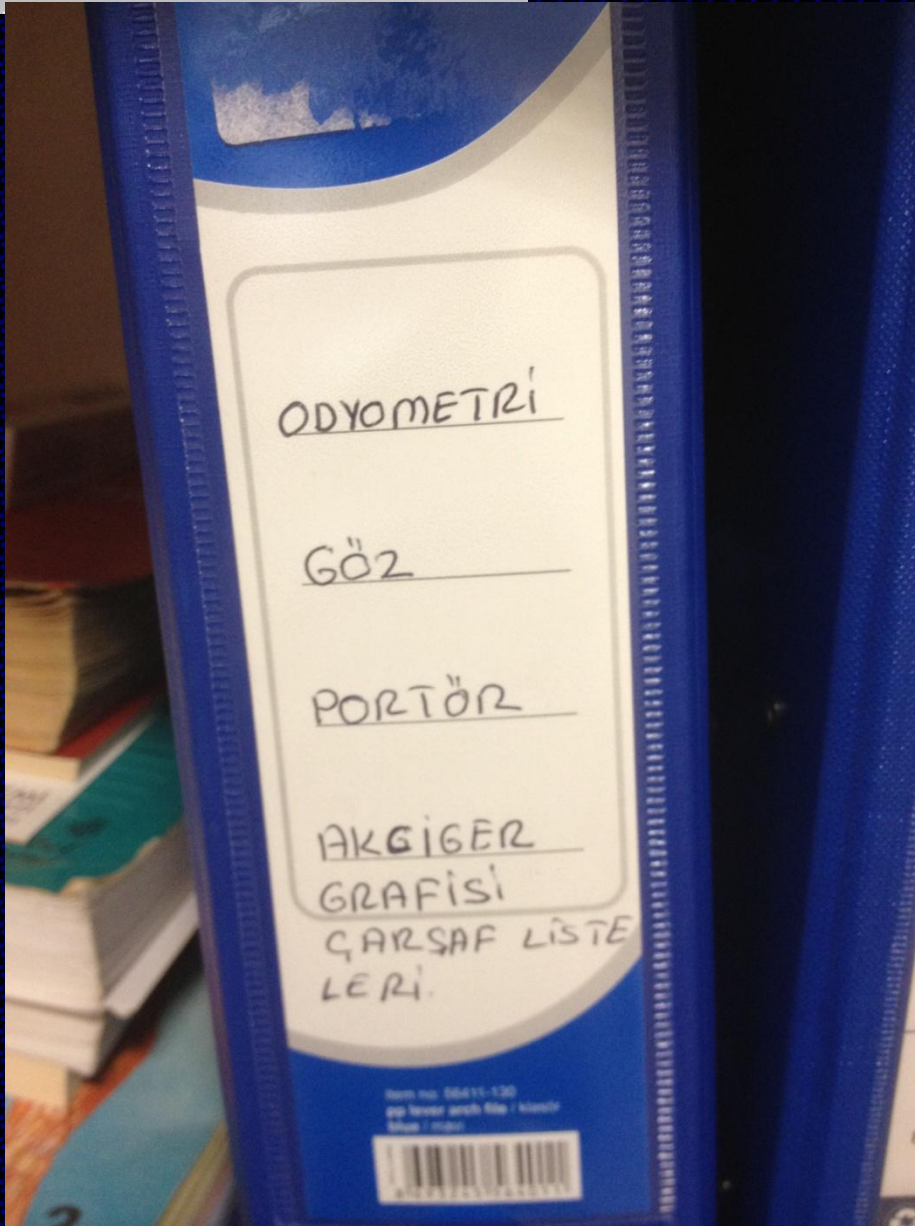 ODYOMETRİ
GÖZ
PORTÖR
AKCİGER
GRAFİSİ
ÇARŞAF LİSTE
LERİ.
Item no. 06411-130
pp lever arch file / klasör
blue / mavi
2